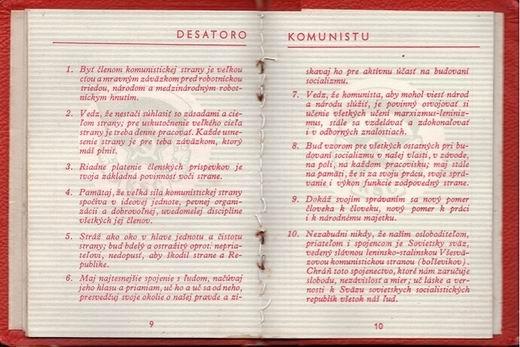 DESATORO
1. Byť členom komunistickej strany je veľkou
cťou a mravným záväzkom pred robotníckou
triedou, národom a medzinárodným robot-
níckym hnutím.
2. Vedz, že nestačí súhlasiť so zásadami a cie-
ľom strany; pre uskutočnenie veľkého cieľa
strany je treba denne pracovať. Každé usne-
senie strany je ti teda záväzkom, ktorý
máš plniť.
3. Riadne platenie členských príspevkov je
tvoja základná povinnosť voči strane.
4. Pamätaj, že veľká sila komunistickej strany
spočíva v ideovej jednote, pevnej organi-
zácii a dobrovoľnej, uvedomelej discipline
všetkých jej členov.
5. Stráž ako oko v hlave jednotu a čistotu
strany; buď bdelý a ostražitý oproti nepria-
teľovi, nedopusť, aby škodil strane a Re-
publike.
6. Maj najtesnejšie spojenie s ľudom, načúvaj
jeho hlasu a priamam, uč ho a uč sa od neho,
presvedčuj svoje okolie o našej pravde a zí-
9
KOMUNISTU
skavaj ho pre aktívnu účasť na budovaní
socializmu.
7. Vedz, že komunista, aby mohol viesť národ
a národu slúžiť, je povinný osvojovať si
učenie všetkých učení marxizmu-leniniz-
mu, stále sa vzdelávať a zdokonalovať
i v odborných znalostiach.
8. Buď vzorom pre všetkých ostatných pri bu-
dovaní socializmu v našej vlasti, v závode,
na poli, na každom pracovisku; maj stále
na pamäti, že si za svoju prácu, svoje sprá-
vanie i výkon funkcie zodpovedný strane.
9. Dokáž svojim správaním sa nový pomer
človeka k človeku, nový pomer k práci
i k národnému majetku.
10. Nezabudni nikdy, že naším osloboditeľom,
priateľom i spojencom je Sovietsky sväz,
vedený slávnou leninsko-stalinskou Všesvä-
zovou komunistickou stranou (boľševikov).
Chráň toto spojenectvo, ktoré nám zaručuje
slobodu, nezávislosť a mier; uč láske a ver-
nosti k Sväzu sovietskych socialistických
republík všetok náš ľud.
10